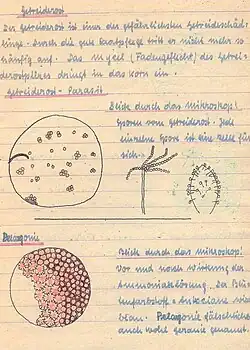 Getreiderost
Der Getreiderost ist einer der gefährlichsten Getreideschäd-
linge. Durch die gute Saatpflege tritt er nicht mehr so
häufig auf. Das Myzel (Fadengeflecht) des Getrei-
derostpilzes dringt in das Korn ein.
Getreiderost - Parasit
Blick durch das Mikroskop!
Sporen vom Getreiderost. Jede
einzelne Spore ist eine Zelle für
sich.
Pelargonie
Blick durch das Mikroskop!
Vor und nach Wirkung der
Ammoniaklösung. Da
blau. Pelargonie fälschlicher
auch wohl Geranie genannt.